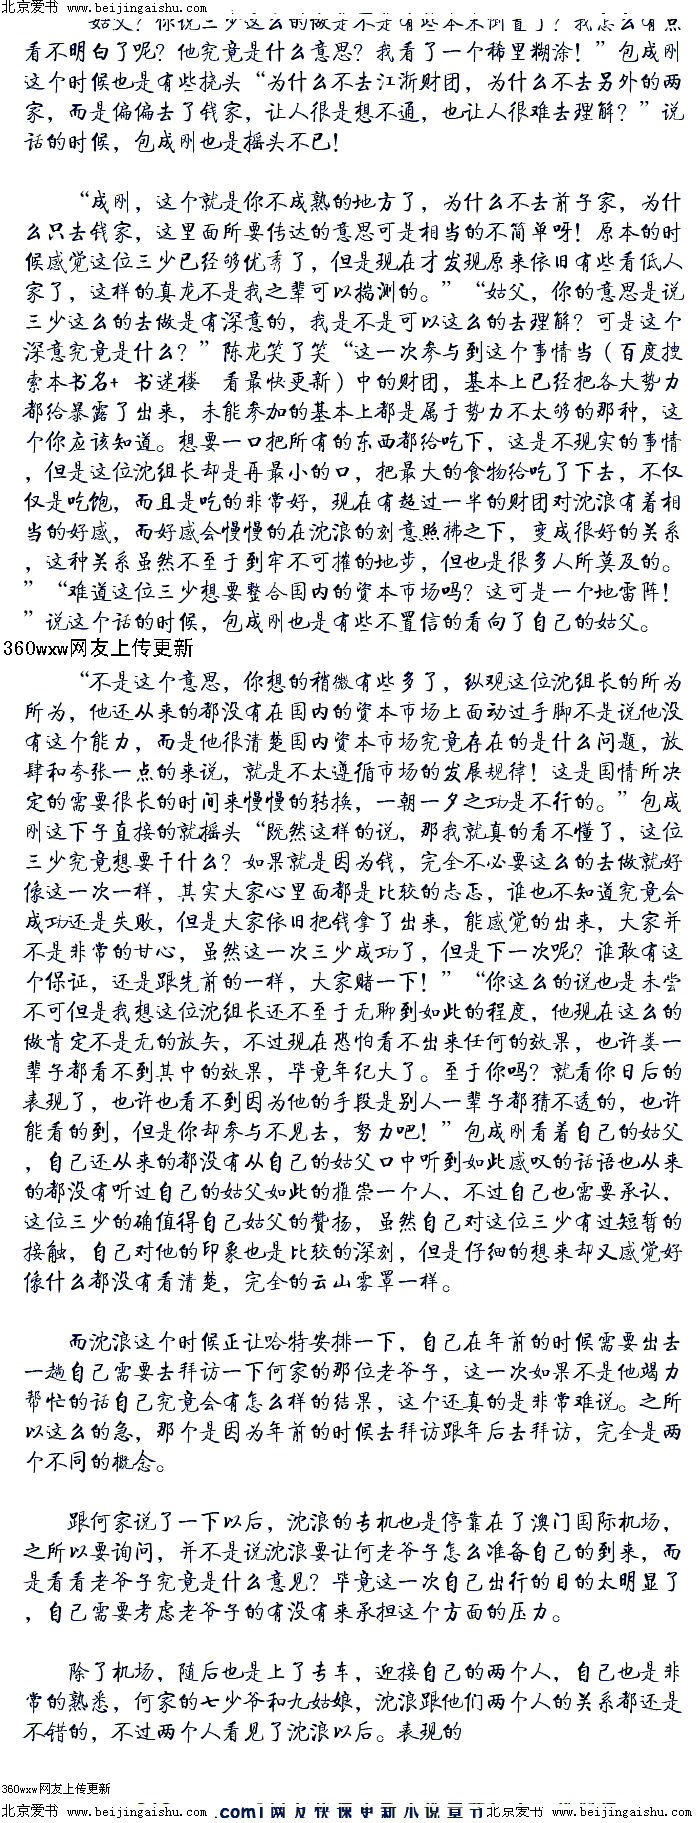 北京爱书 www.beijingaishu.com 北京爱书 www.beijingaishu.com
姑父?你说三少这么的做是不是有些本末倒置了?我怎么有点
看不明白了呢?他究竟是什么意思?我看了一个稀里糊涂!”包成刚
这个时候也是有些挠头“为什么不去江浙财团,为什么不去另外的两
家,而是偏偏去了钱家,让人很是想不通,也让人很难去理解?”说
话的时候,包成刚也是摇头不已!
“成刚,这个就是你不成熟的地方了,为什么不去前子家,为什
么只去钱家,这里面所要传达的意思可是相当的不简单呀!原本的时
候感觉这位三少已经够优秀了,但是现在才发现原来依旧有些看低人
家了,这样的真龙不是我之辈可以揣测的。”“姑父,你的意思是说
三少这么的去做是有深意的,我是不是可以这么的去理解?可是这个
深意究竟是什么?”陈龙笑了笑“这一次参与到这个事情当(百度搜
索本书名+ 书迷楼 看最快更新)中的财团,基本上已经把各大势力
都给暴露了出来,未能参加的基本上都是属于势力不太够的那种,这
个你应该知道。想要一口把所有的东西都给吃下,这是不现实的事情
,但是这位沈组长却是再最小的口,把最大的食物给吃了下去,不仅
仅是吃饱,而且是吃的非常好,现在有超过一半的财团对沈浪有着相
当的好感,而好感会慢慢的在沈浪的刻意照拂之下,变成很好的关系
,这种关系虽然不至于到牢不可摧的地步,但也是很多人所莫及的。
”“难道这位三少想要整合国内的资本市场吗?这可是一个地雷阵!
”说这个话的时候,包成刚也是有些不置信的看向了自己的姑父。
360wxw网友上传更新
“不是这个意思,你想的稍微有些多了,纵观这位沈组长的所为
所为,他还从来的都没有在国内的资本市场上面动过手脚不是说他没
有这个能力,而是他很清楚国内资本市场究竟存在的是什么问题,放
肆和夸张一点的来说,就是不太遵循市场的发展规律!这是国情所决
定的需要很长的时间来慢慢的转换,一朝一夕之功是不行的。”包成
刚这下子直接的就摇头“既然这样的说,那我就真的看不懂了,这位
三少究竟想要干什么?如果就是因为钱,完全不必要这么的去做就好
像这一次一样,其实大家心里面都是比较的忐忑,谁也不知道究竟会
成功还是失败,但是大家依旧把钱拿了出来,能感觉的出来,大家并
不是非常的甘心,虽然这一次三少成功了,但是下一次呢?谁敢有这
个保证,还是跟先前的一样,大家赌一下!”“你这么的说也是未尝
不可但是我想这位沈组长还不至于无聊到如此的程度,他现在这么的
做肯定不是无的放矢,不过现在恐怕看不出来任何的效果,也许娄一
辈子都看不到其中的效果,毕竟年纪大了。至于你吗?就看你日后的
表现了,也许也看不到因为他的手段是别人一辈子都猜不透的,也许
能看的到,但是你却参与不见去,努力吧!”包成刚看着自己的姑父
,自己还从来的都没有从自己的姑父口中听到如此感叹的话语也从来
的都没有听过自己的姑父如此的推崇一个人,不过自己也需要承认,
这位三少的确值得自己姑父的赞扬,虽然自己对这位三少有过短暂的
接触,自己对他的印象也是比较的深刻,但是仔细的想来却又感觉好
像什么都没有看清楚,完全的云山雾罩一样。
而沈浪这个时候正让哈特安排一下,自己在年前的时候需要出去
一趟自己需要去拜访一下何家的那位老爷子,这一次如果不是他竭力
帮忙的话自己究竟会有怎么样的结果,这个还真的是非常难说。之所
以这么的急,那个是因为年前的时候去拜访跟年后去拜访,完全是两
个不同的概念。
跟何家说了一下以后,沈浪的专机也是停靠在了澳门国际机场,
之所以要询问,并不是说沈浪要让何老爷子怎么准备自己的到来,而
是看看老爷子究竟是什么意见?毕竟这一次自己出行的目的太明显了
,自己需要考虑老爷子的有没有来承担这个方面的压力。
除了机场,随后也是上了专车,迎接自己的两个人,自己也是非
常的熟悉,何家的七少爷和九姑娘,沈浪跟他们两个人的关系都还是
不错的,不过两个人看见了沈浪以后。表现的
360wxw网友上传更新
北京爱书 www.beijingaishu.com 北京爱书 www.beijingaishu.com